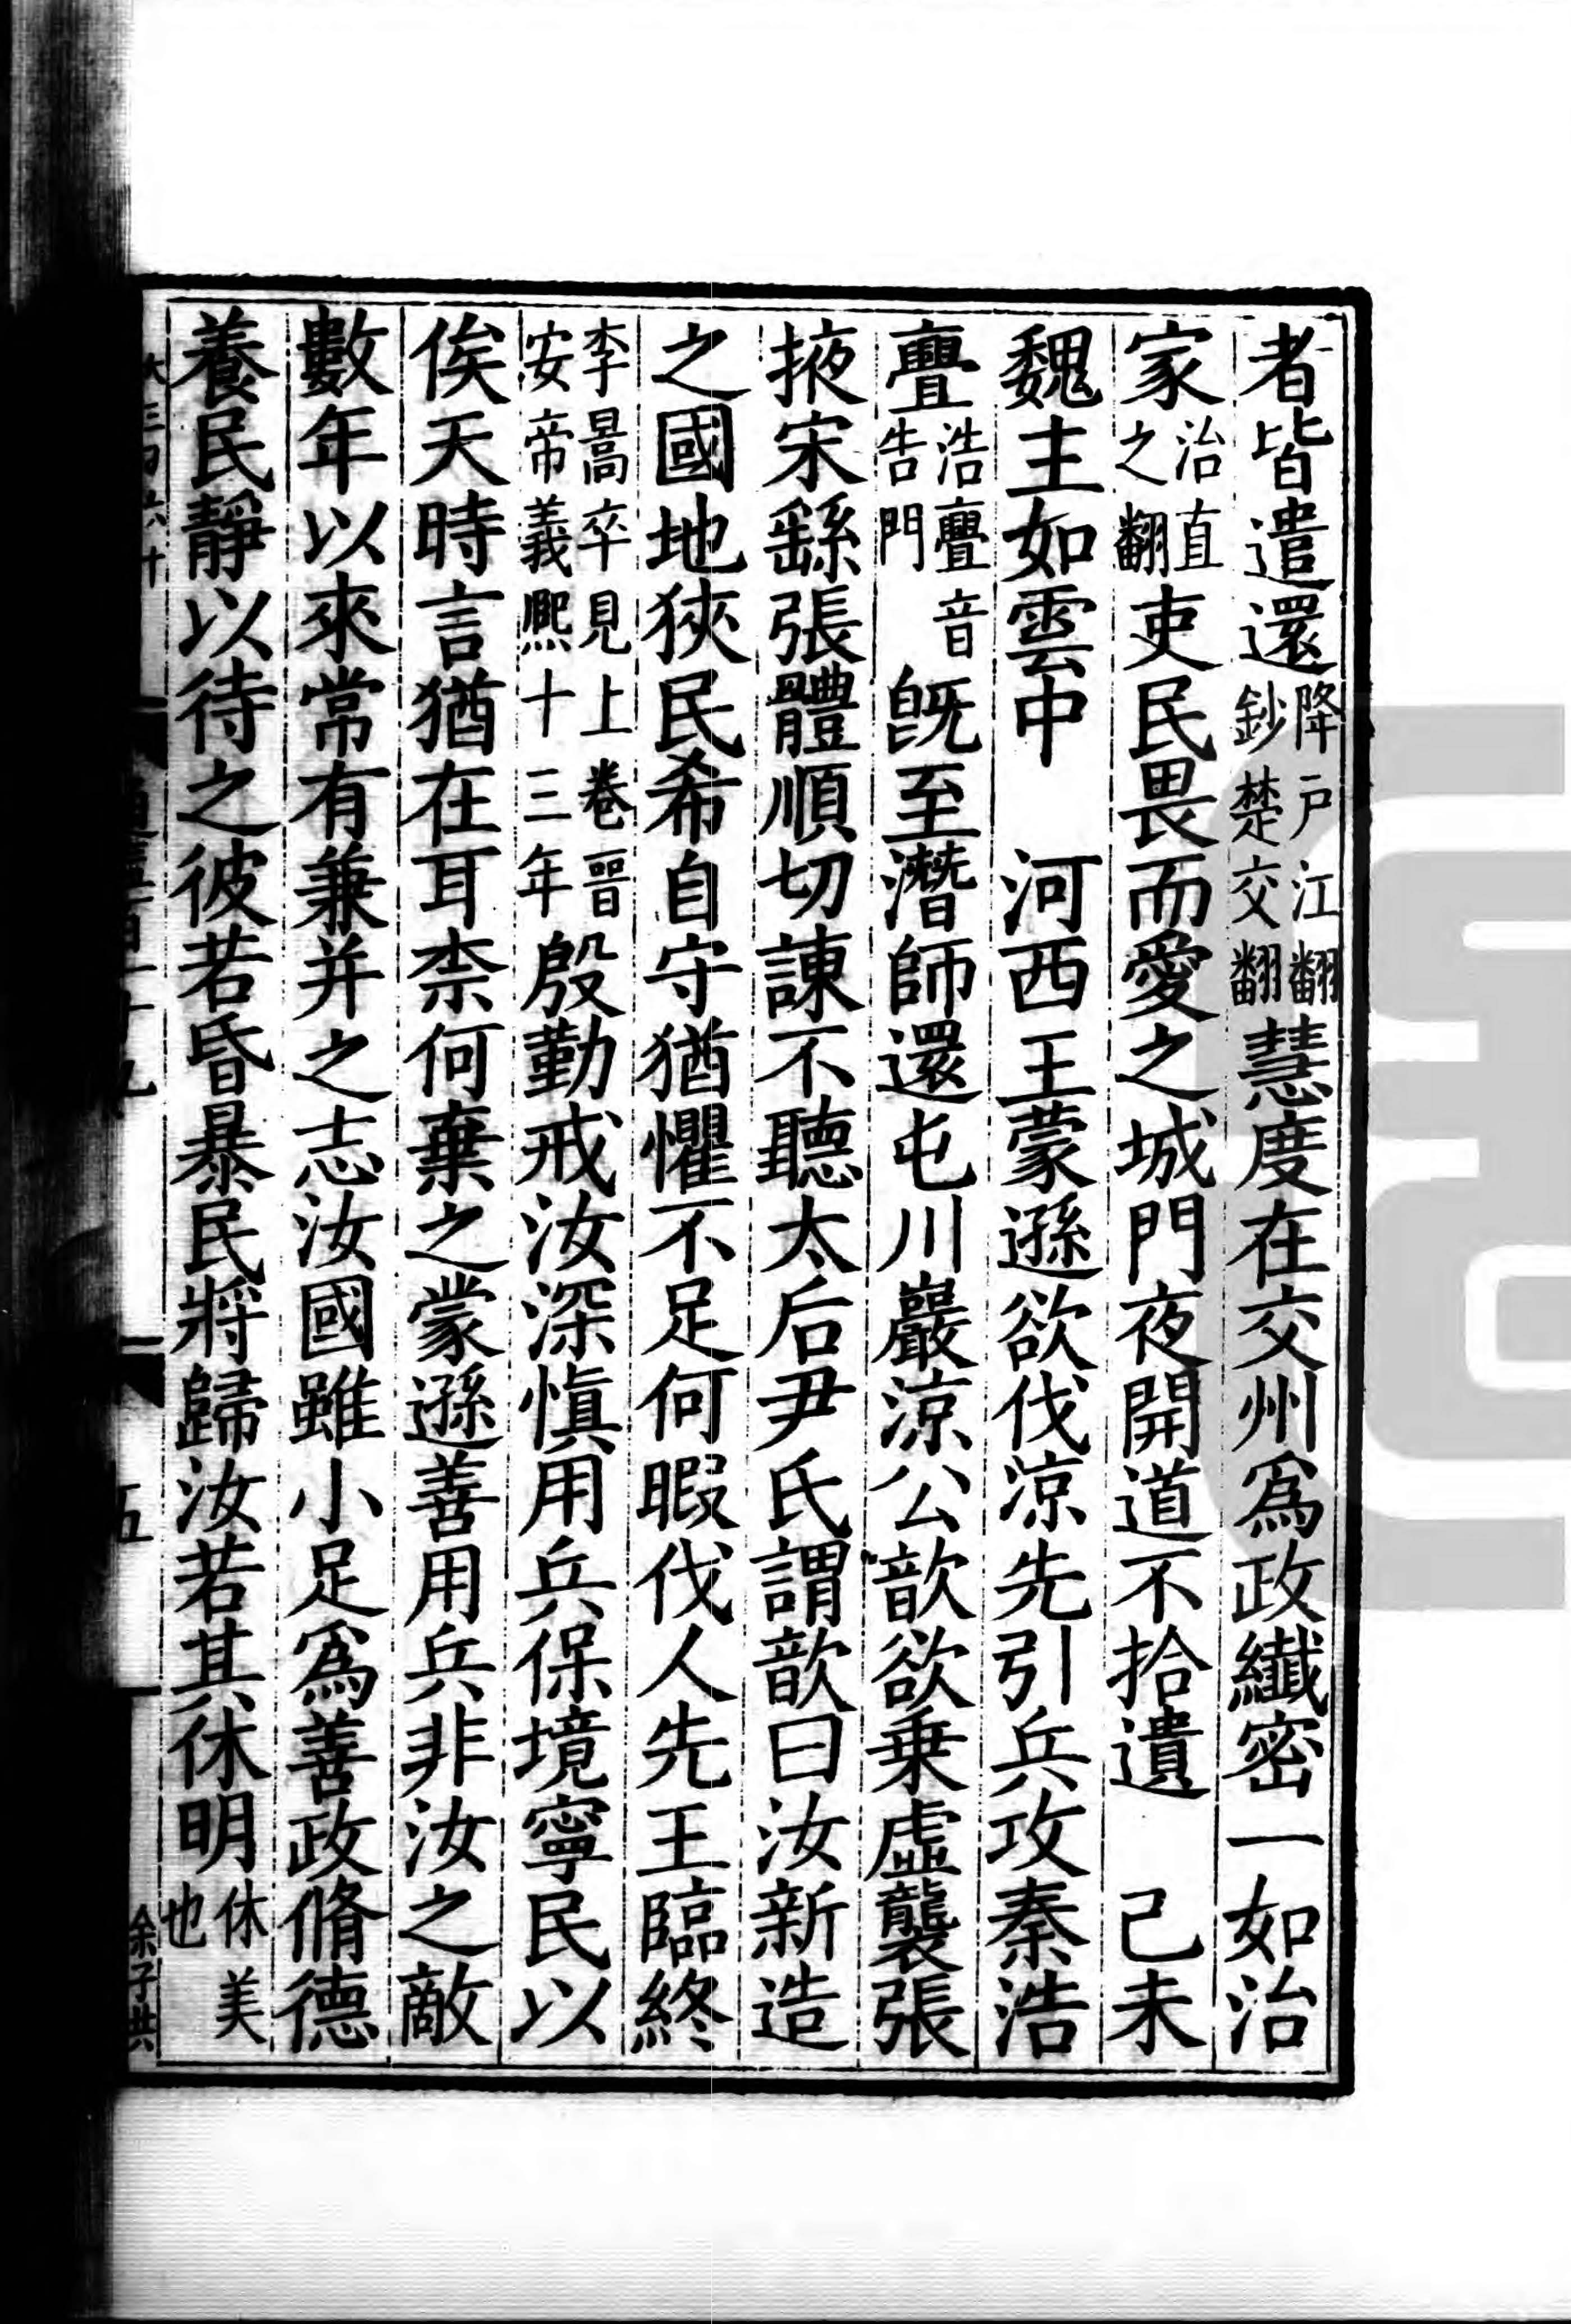 者皆遣還降戶江翻鈔楚交翻慧度在交州爲政纖密一如治
家治直之翻吏民畏而愛之城門夜開道不拾遺　己未
魏主如雲中　河西王蒙遜欲伐涼先引兵攻秦浩
亹浩亹音告門旣至潛師還屯川巖涼公歆欲乗虛襲張
掖宋繇張體順切諫不聽太后尹氏謂歆曰汝新造
之國地狹民希自守猶懼不足何暇伐人先王臨終
李暠卒見上卷晉安帝義熙十三年殷勤戒汝深愼用兵保境寧民以
俟天時言猶在耳柰何棄之蒙遜善用兵非汝之敵
數年以來常有兼并之志汝國雖小足爲善政脩德
養民靜以待之彼若昏暴民將歸汝若其休明休美也
五
余子共